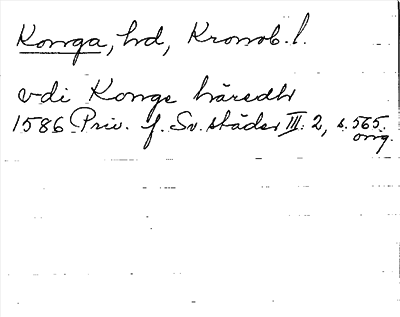 Konga, hd, Kronob. l.
vdi Konge häredh
1586 Priv. f. Sv. städer III: 2, s. 565.
orig.